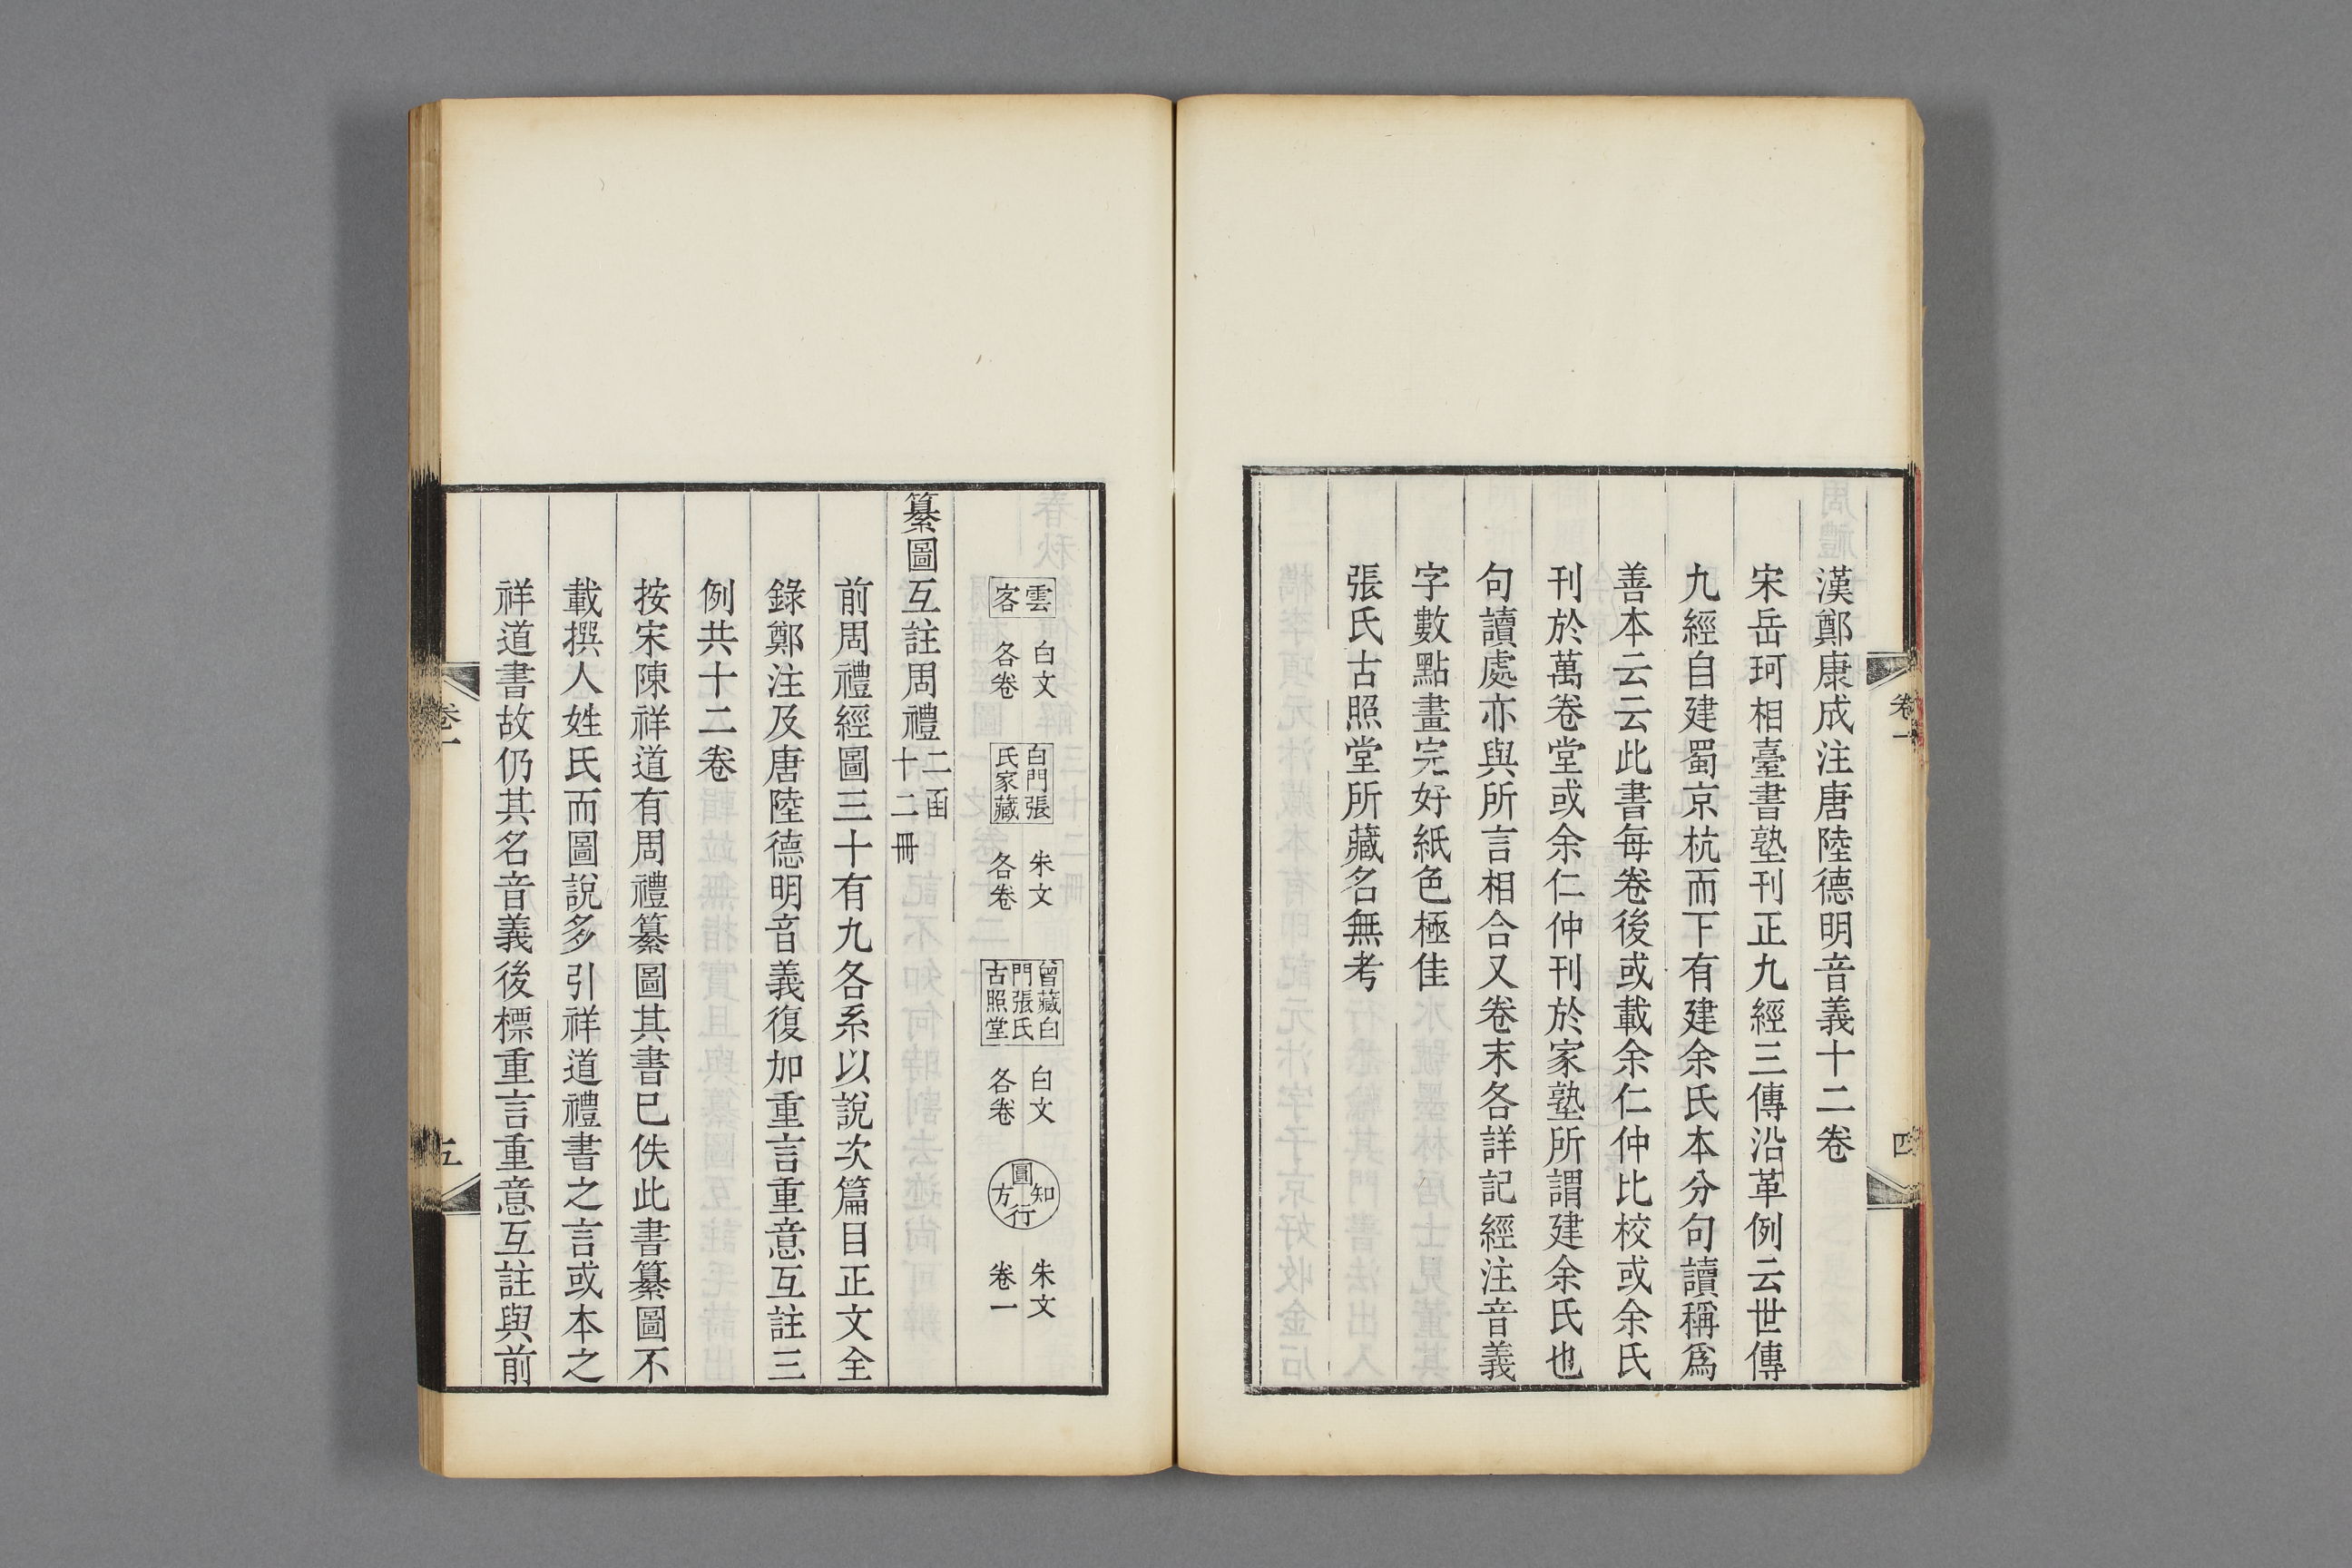 卷一
四
漢鄭康成注唐陸德明音義十二卷
宋岳珂相臺書塾刊正九經三傳沿革例云世傳
九經自建蜀京杭而下有建余氏本分句讀稱爲
善本云云此書每卷後或載余仁仲比校或余氏
刊於萬卷堂或余仁仲刊於家塾所謂建余氏也
句讀處亦與所言相合又卷末各詳記經注音義
字數點畫完好紙色極佳
張氏古照堂所藏名無考
雲客
白文
各卷
白門張氏家藏
朱文
各卷
曾藏白門張氏古照堂
白文
各卷
知圓行方
朱文
卷一
纂圖互註周禮二函十二冊
前周禮經圖三十有九各系以說次篇目正文全
錄鄭注及唐陸德明音義復加重言重意互註三
例共十二卷
按宋陳祥道有周禮纂圖其書已佚此書纂圖不
載撰人姓氏而圖說多引祥道禮書之言或本之
祥道書故仍其名音義後標重言重意互註與前
卷一
五